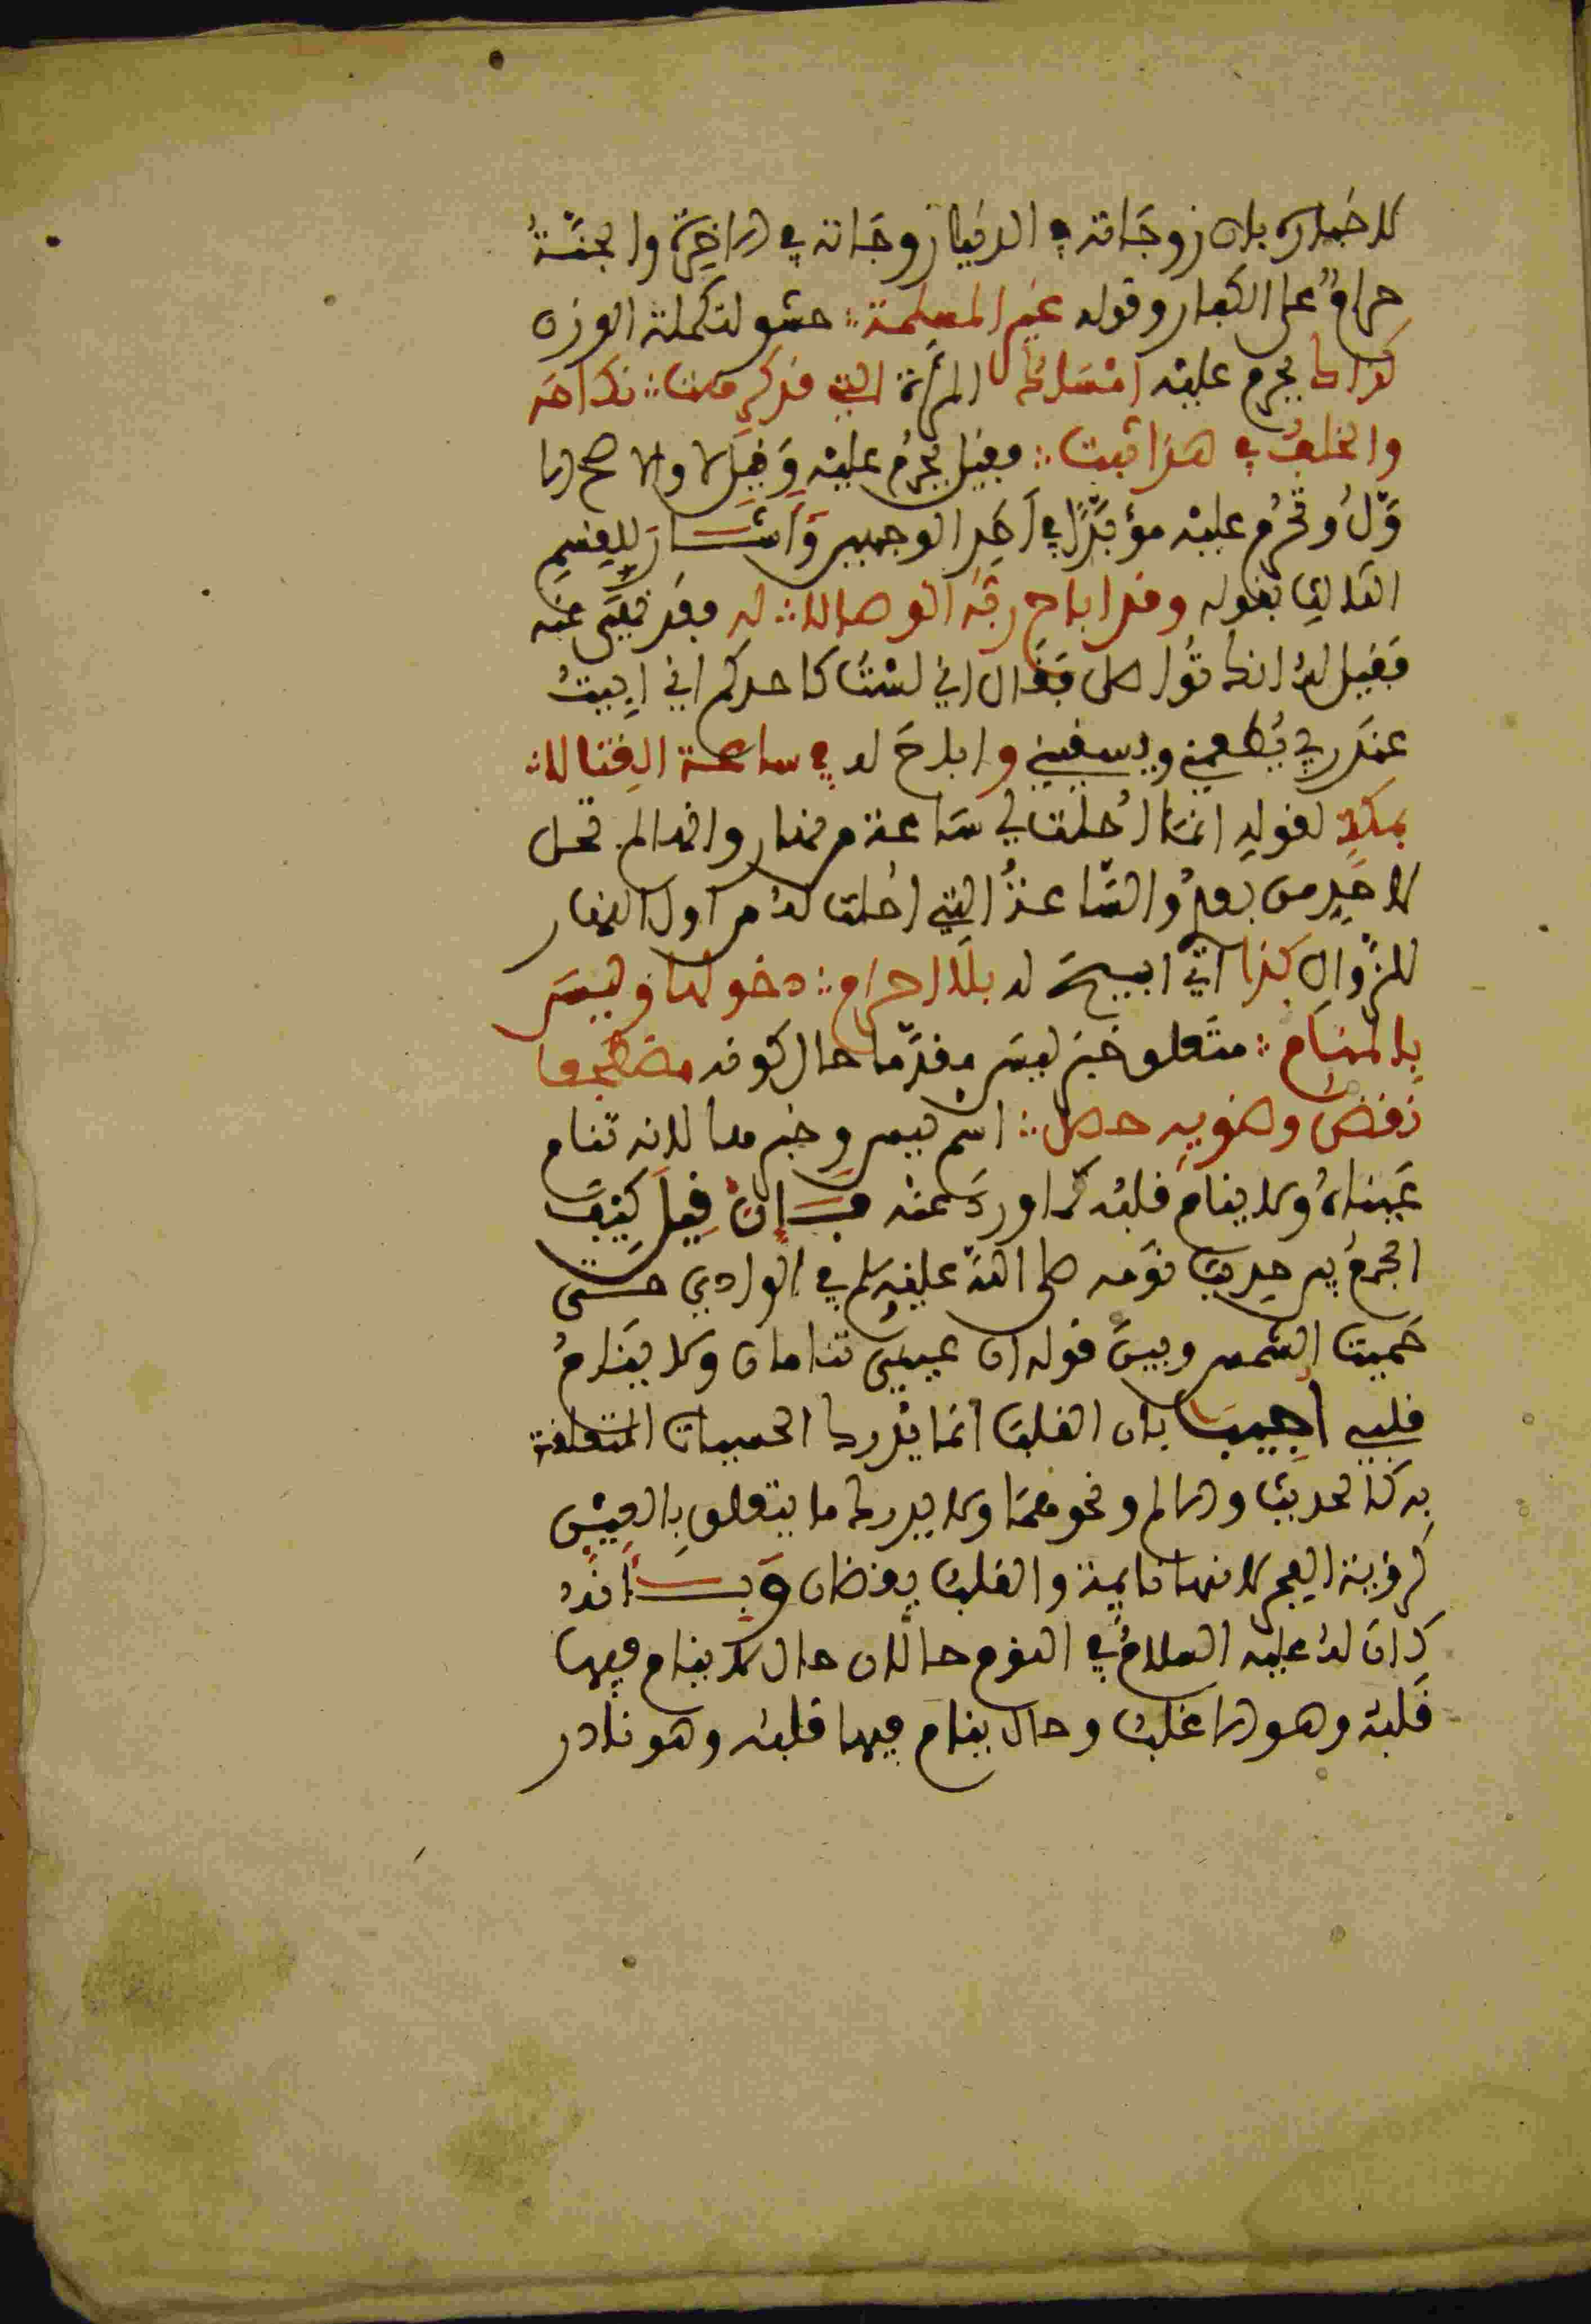 للاخباره بان زوجاته في الدنيا زوجاته في الاخرة والجنة
حرام على الكفار وقوله غير المسلمة حشو لتكملة الوزن
كذاك يحرم عليه امساك المرأة التي قد كرهت نكاحه
والخلف في هذا ثبت فقيل يحرم عليه وقيل لا والاصح الا
ول وتحرم عليه مؤبدا في احد الوجهين واشار للقسم
الثالث بقوله وقد اباح ربه الوصال له فقد نهى عنه
فقيل له انك تواصل فقال اني لست كاحدكم اني ابيت
عند ربي يطعمني ويسقيني واباح له في ساعة القتال
بمكة لقوله انما احلت لي ساعة من نهار وانها لم تحل
لاحد من بعد والساعة التي احلت له من اول النهار
للزوال كذا اي ابيح له بلا احرام دخولها وليس
بالمنام متعلق خبر ليس مقدما حال كونه مضطجعا
نقض وضويه حصل اسم ليس وخبرها لانه تنام
عيناه ولا ينام قلبه كما ورد عنه فإن قيل كيف
الجمع بين حديث نومه صلى الله عليه وسلم في الوادي حتى
حميت الشمس وبين قوله ان عيني تنامان ولا ينام
قلبي اجيب بان القلب انما يدرك الحسيات المتعلقة
به كالحديث والالم ونحوهما ولا يدرك ما يتعلق بالعين
كرؤية الفجر لانها نايمة والقلب يقظان وبانه
كان له عليه السلام في النوم حالان حال لا ينام فيها
قلبه وهو الاغلب وحال ينام فيها قلبه وهو نادر